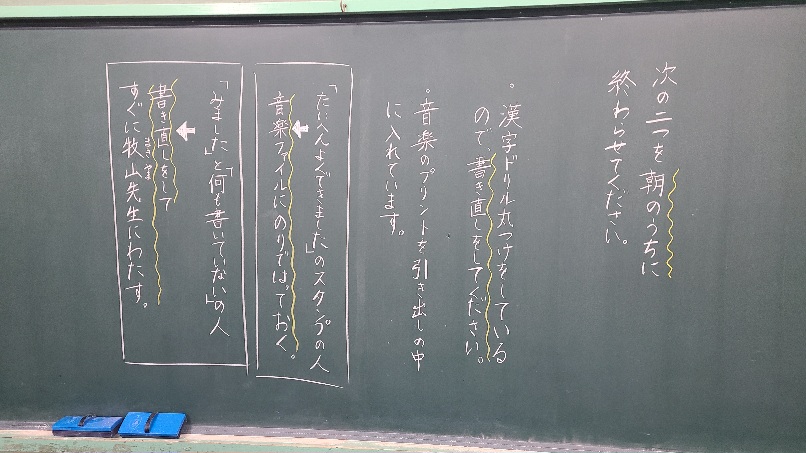 次の二つを朝のうちに
終わらせてください。
。漢字ドリル丸つけをしている
ので、書き直しをしてください。
。音楽のプリントを引き出しの中
に入れています。
「たいへんよくできました」のスタンプの人
音楽ファイルにのりではっておく。
「みました」と「何も書いていない」の人
書き直しをして
すぐに牧山先生にわたす。
まきやま